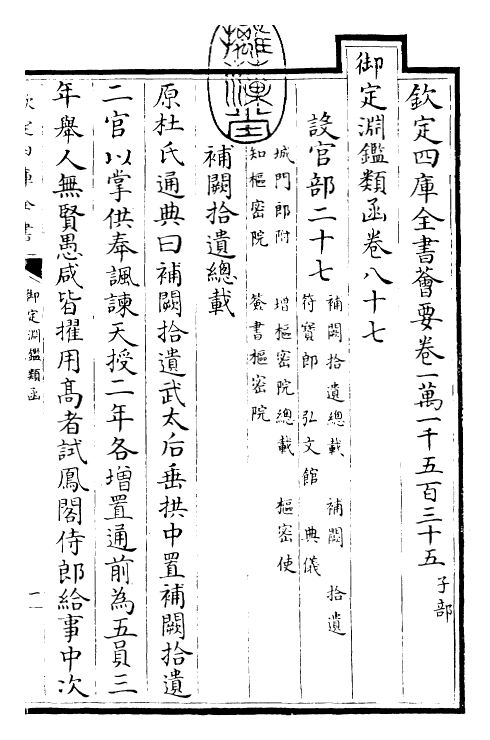 欽定四庫全書薈要卷一萬一千五百三十五 子部
御定淵鑑類函卷八十七
設官部二十七
補闕拾遺總載 補闕 拾遺
符寶郎 弘文館 典儀
城門郎附 增樞密院總載 樞密使
知樞密院 簽書樞密院
補闕拾遺總載
原杜氏通典曰補闕拾遺武太后垂拱中置補闕拾遺
二官以掌供奉諷諫天授二年各增置通前為五員三
年舉人無賢愚咸皆擢用高者試鳳閣侍郎給事中次
欽定四庫全書
御定淵鑑類函
一